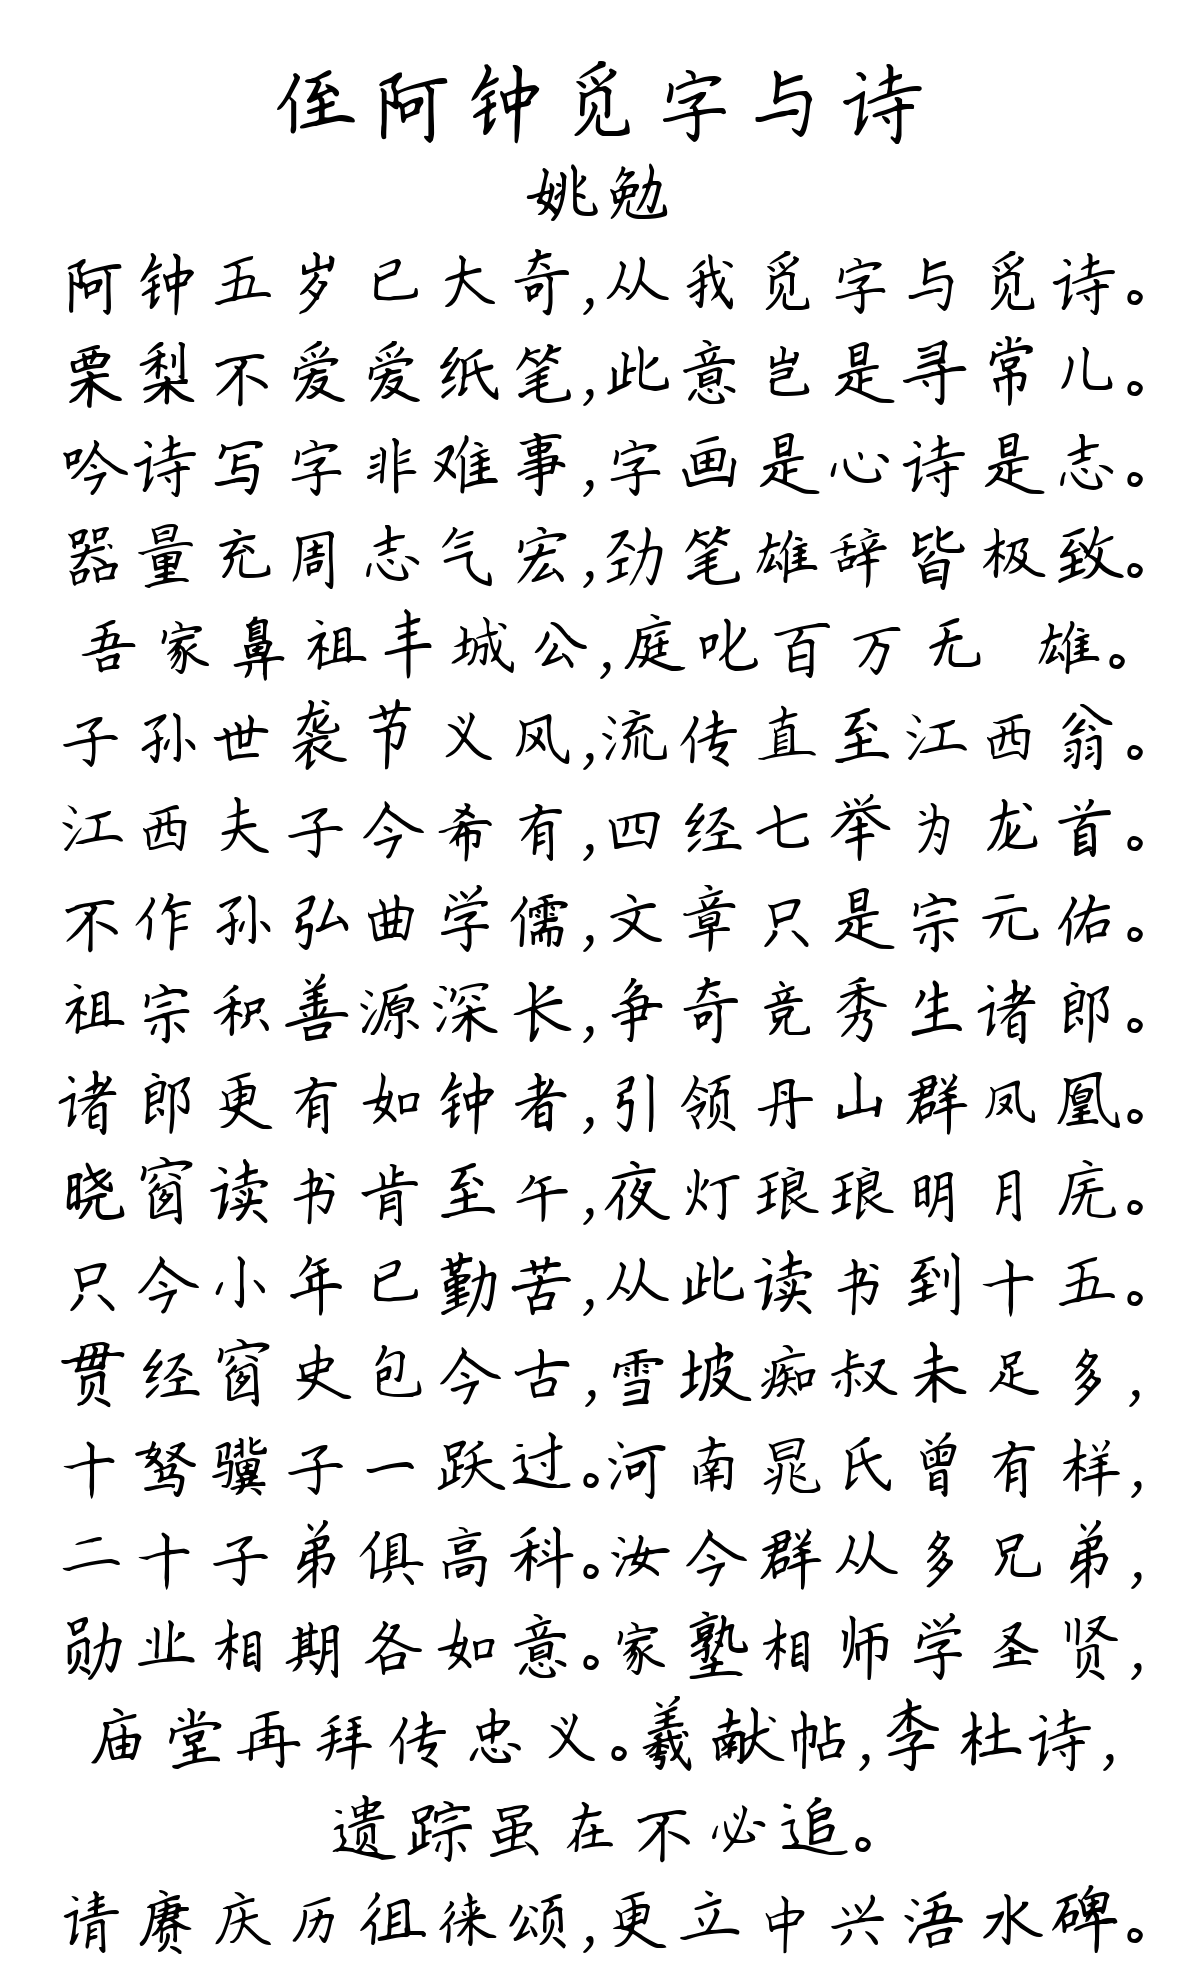 侄阿钟觅字与诗
姚勉
阿钟五岁已大奇,从我觅字与觅诗。
栗梨不爱爱纸笔,此意岂是寻常儿。
吟诗写字非难事,字画是心诗是志。
器量充周志气宏,劲笔雄辞皆极致。
吾家鼻祖丰城公,庭叱百万无 雄。
子孙世袭节义风,流传直至江西翁。
江西夫子今希有,四经七举为龙首。
不作孙弘曲学儒,文章只是宗元佑。
祖宗积善源深长,争奇竞秀生诸郎。
诸郎更有如钟者,引领丹山群凤凰。
晓窗读书肯至午,夜灯琅琅明月庑。
只今小年已勤苦,从此读书到十五。
贯经窗史包今古,雪坡痴叔未足多,
十驽骥子一跃过。河南晁氏曾有样,
二十子弟俱高科。汝今群从多兄弟,
勋业相期各如意。家塾相师学圣贤,
庙堂再拜传忠义。羲献帖,李杜诗,
遗踪虽在不必追。
请赓庆历徂徕颂,更立中兴浯水碑。